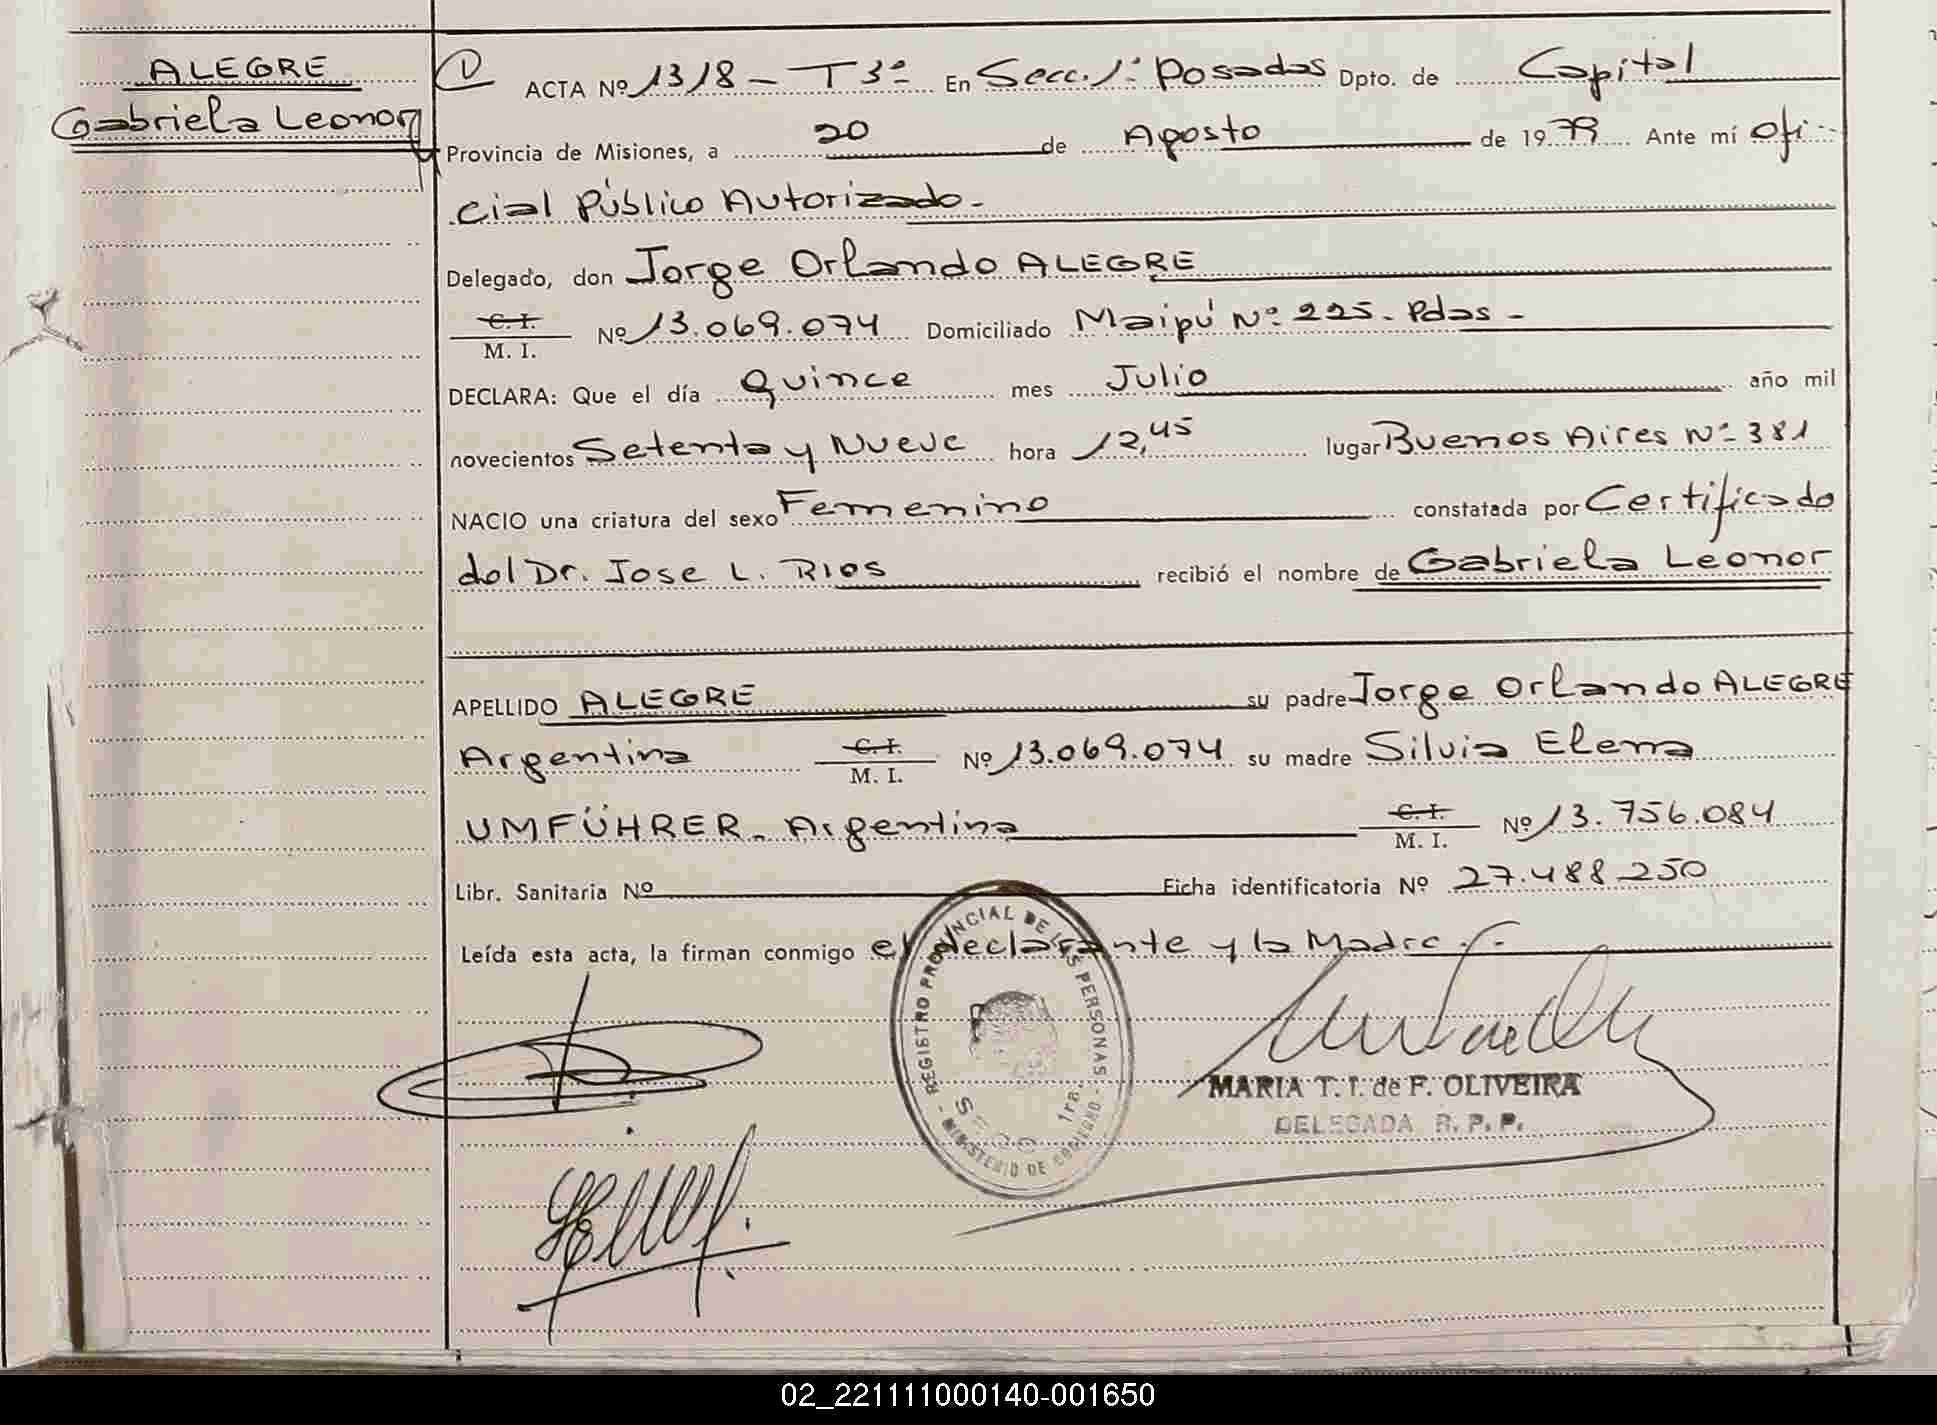 ALEGRE
Gabriela Leonor
1 ACTA Nº 1318 - T 3º En Secc. 1º Posadas Dpto. de Capital
Provincia de Misiones, a 20 de Agosto de 1979 Ante mí Ofi-
cial Público Autorizado-
Delegado, don Jorge Orlando ALEGRE
C. I. M. I. Nº 13.069.074 Domiciliado Maipú Nº 225. Pdas -
DECLARA: Que el día Quince mes Julio año mil
novecientos Setenta y Nueve hora 12,45 lugar Buenos Aires Nº 381
NACIO una criatura del sexo Femenino constatada por Certificado
del Dr. Jose L. Rios recibió el nombre de Gabriela Leonor
APELLIDO ALEGRE su padre Jorge Orlando ALEGRE
Argentina C. I. M. I. Nº 13.069.074 su madre Silvia Elena
UMFÜHRER. Argentina C. I. M. I. Nº 13.756.084
Libr. Sanitaria Nº Ficha identificatoria Nº 27.488.250
Leída esta acta, la firman conmigo el declarante y la Madre.-
REGISTRO PROVINCIAL DE LAS PERSONAS
SECC 1ra.
MINISTERIO DE GOBIERNO
MARIA T. I. de F. OLIVEIRA
DELEGADA R. P. P.
02_221111000140-001650